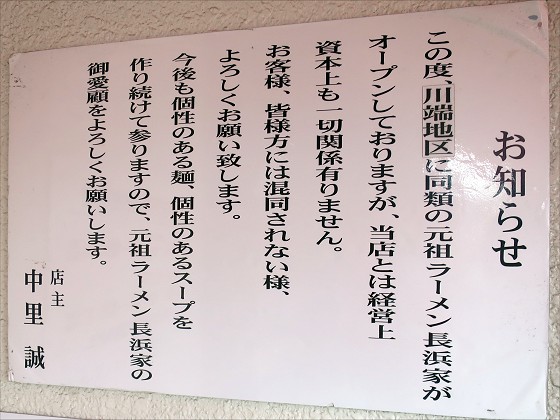 お知らせ
この度、川端地区に同類の元祖ラーメン長浜家が
オープンしておりますが、当店とは経営上
資本上も一切関係有りません。
お客様、皆様方には混同されない様、
よろしくお願い致します。
今後も個性のある麺、個性のあるスープを
作り続けて参りますので、元祖ラーメン長浜家の
御愛顧をよろしくお願いします。
店主
中里 誠